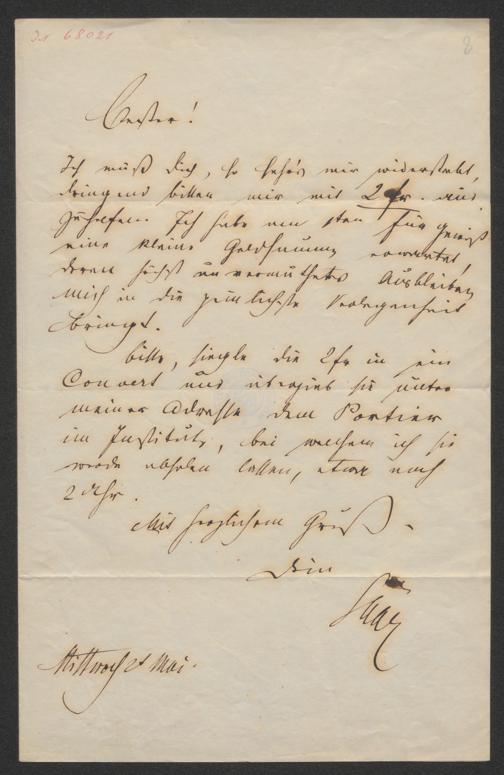 JN 68021
8
Bester!
Ich muß Dich, so sehr's mir widerstrebt,
dringend bitten mir mit 2 fr. aus
zuhelfen. Ich habe am 1ten für gewiß
eine kleine Geldsumme erwartet,
deren höchst unvermuthetes Ausbleiben
mich in die peinlichste Verlegenheit
bringt.
Bitte, siegle die 2 fr in ein
Couvert und übergieb sie unter
meiner Adresse dem Portier
im Institute, bei welchem ich sie
werde abholen lassen, etwa nach
2 Uhr.
Mit herzlichem Gruß.
Dein
Saar
Mittwoch 2t Mai.